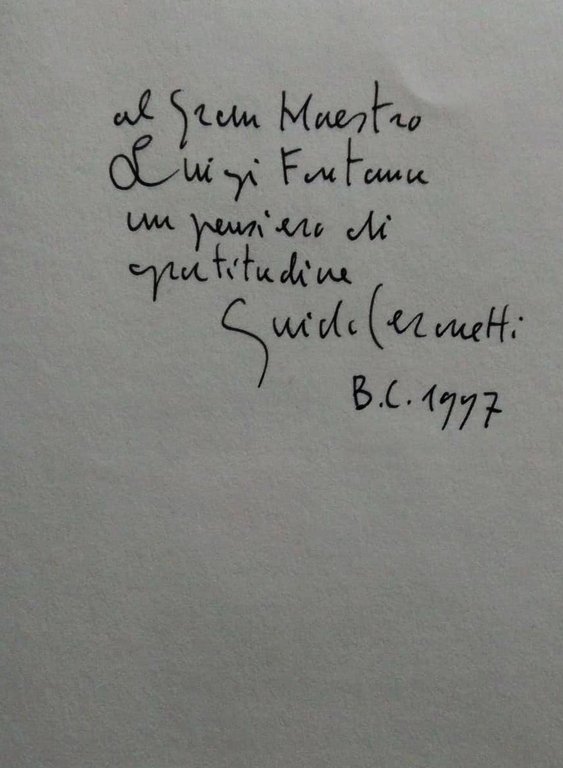 al Gran Maestro
Luigi Fontana
un pensiero di
gratitudine
Guido Ceronetti
B.C. 1997